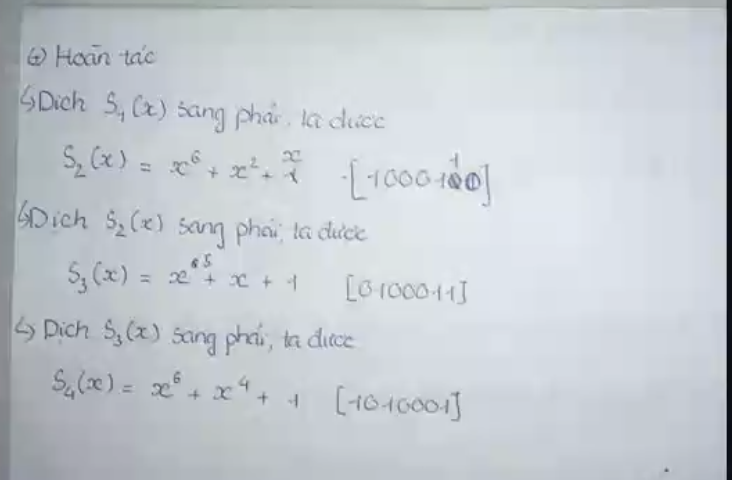 ⊕ Hoãn tác
↳ Dịch S₁(x) sang phải, ta được
S₂(x) = x⁶ + x² + x [1000110]
↳ Dịch S₂(x) sang phải, ta được
S₃(x) = x⁵ + x + 1 [0100011]
↳ Dịch S₃(x) sang phải, ta được
S₄(x) = x⁶ + x⁴ + 1 [1010001]